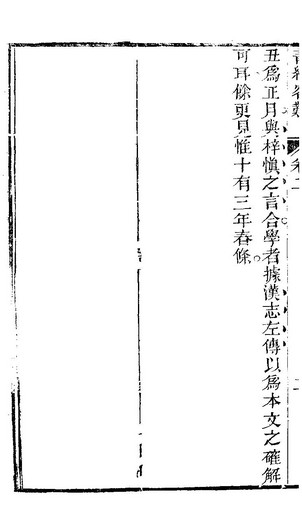 丑爲正月與梓愼之言合學者據漢志左傳以爲本文之確解
可耳餘更見惟十有三年春條